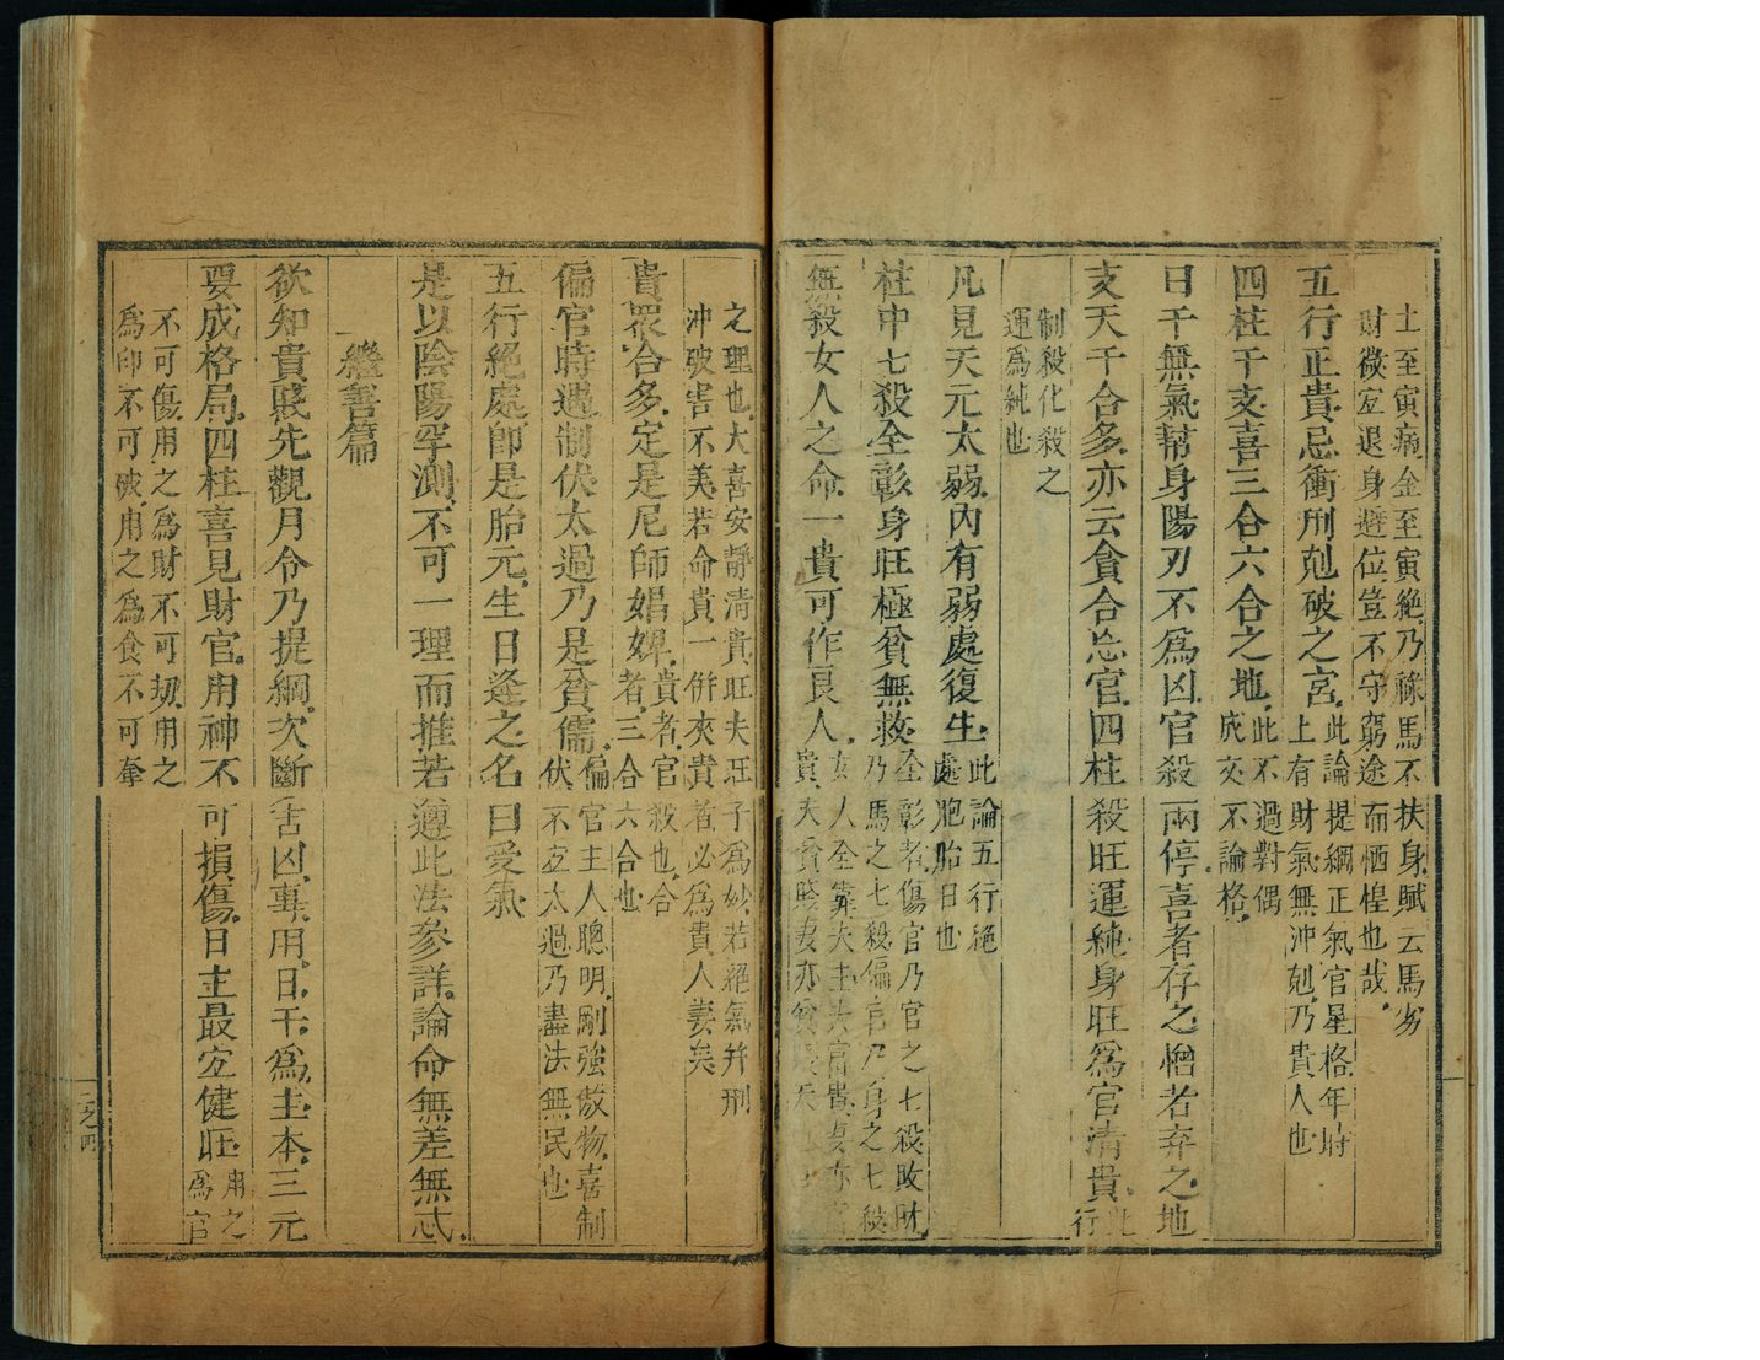 土至寅病金至寅絶乃祿馬不扶身賦云馬劣
財微宜退身避位豈不守窮途而恓惶也哉
五行正貴忌衝刑尅破之宮
此論提綱正氣官星格年時
上有財氣無沖尅乃貴人也
四柱干支喜三合六合之地
此不過對偶
底文不論格
日干無氣幇身陽刃不爲凶官殺兩停喜者存之憎者弃之地
支天干合多亦云貪合忘官四柱殺旺運純身旺爲官清貴
此
行
制殺化殺之
運爲純也
凡見天元太弱內有弱處復生
此論五行絕
處胞胎日也
柱中七殺全彰身旺極貧無救
全彰者傷官乃官之七殺敗財
乃馬之七殺偏官乃身之七殺
無殺女人之命一貴可作良人
女人全靠夫主夫官貴妻亦官
貴夫貧賤妻亦貧
之理也大喜安靜清貴旺夫旺子爲妙若絕氣并刑
沖破害不美若命貴一併夾貴者必爲貴人妻矣
貴眾合多定是尼師娼婢
貴者官殺也合
者三合六合也
偏官時遇制伏太過乃是貧儒
偏官主人聰明剛強傲物喜制
伏不宜太過乃盡法無民也
五行絕處卽是胎元生日逢之名曰受氣
是以陰陽罕測不可一理而推若遵此法參詳論命無差無忒
繼善篇
欲知貴賤先觀月令乃提綱次斷吉凶專用日干爲主本三元
要成格局四柱喜見財官用神不可損傷日主最宜健旺
用之
爲官
不可傷用之爲財不可刼用之
爲印不可破用之爲食不可奪